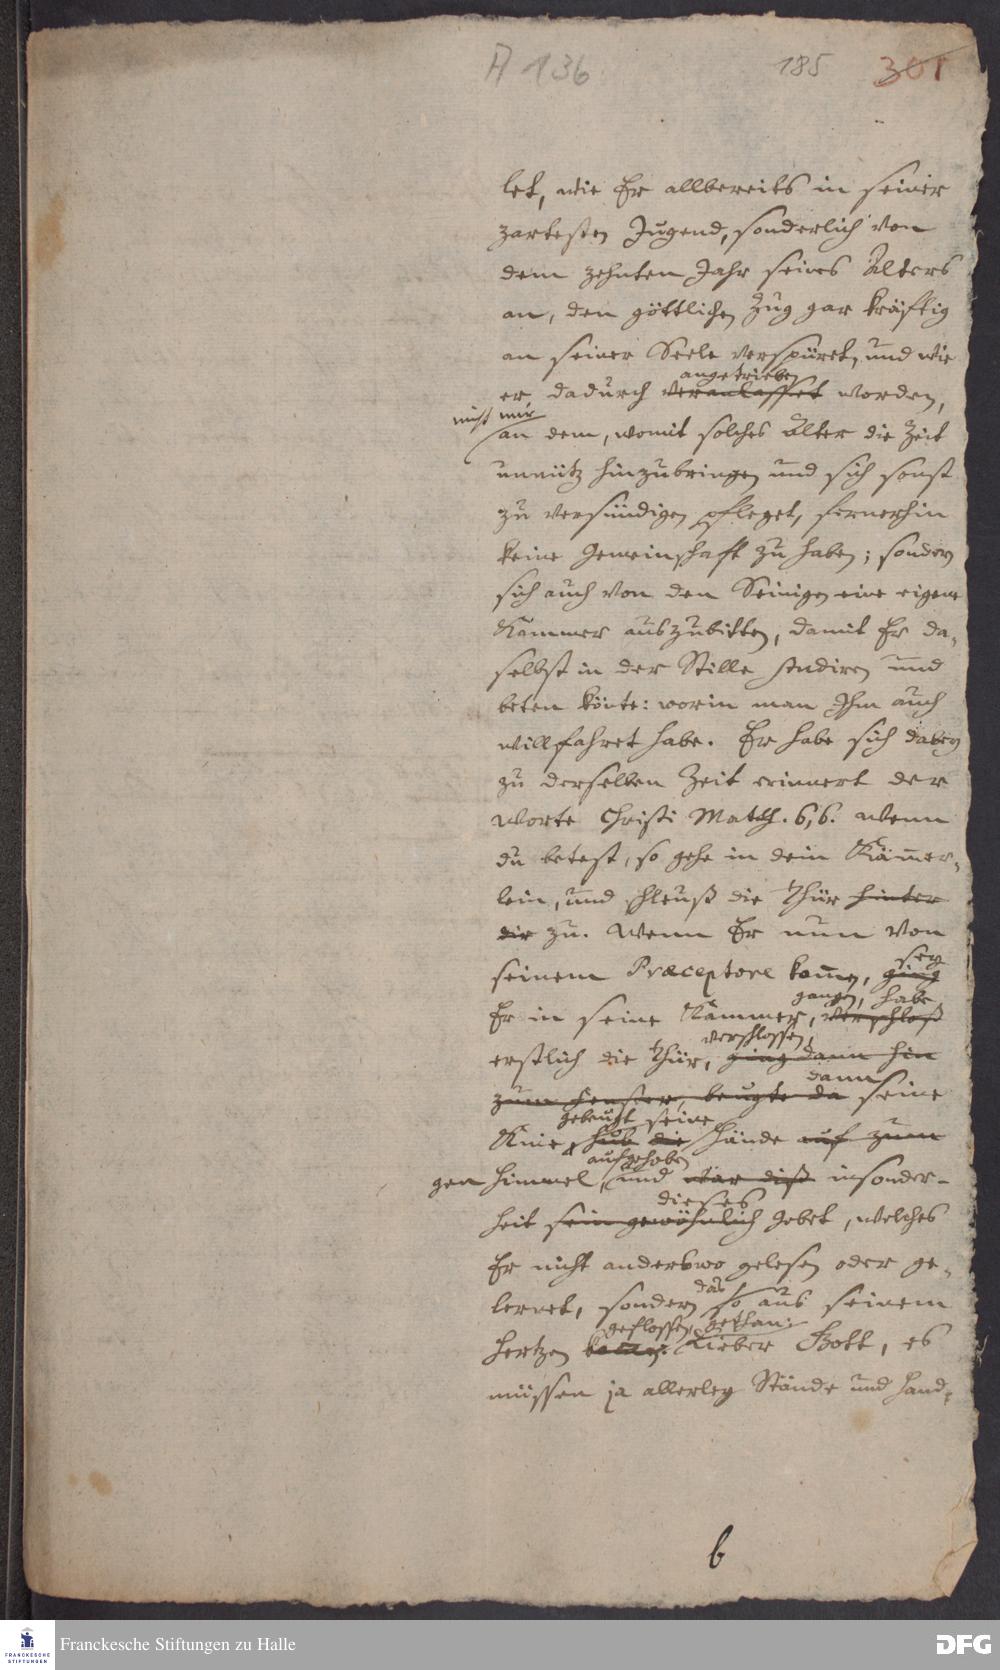 A 136 185 301
let, wie Er allbereits in seiner
zartesten Jugend, sonderlich von
dem zehnten Jahr seines Alters
an, den göttlichen Zug gar kräftig
an seiner Seele verspüret, und wie
angetrieben
er dadurch veranlasset worden,
nicht nur
an dem, womit solches Alter die Zeit
unnütz hinzubringen und sich sonst
zu versündigen pfleget, fernerhin
keine Gemeinschaft zu haben; sondern
sich auch von den Seinigen eine eigene
Kammer auszubitten, damit Er da-
selbst in der Stille studiren und
beten könte: worin man Ihm auch
willfahret habe. Er habe sich dabey
zu derselben Zeit erinnert der
Worte Christi Matth. 6,6. Wenn
du betest, so gehe in dein Kämmer-
lein, und schleuß die Thür hinter
dir zu. Wenn Er nun von
sey
seinem Præceptore kommen, ging
gangen, habe
Er in seine Kammer, verschloß
verschlossen,
erstlich die Thür, ging dann hin
dann
zum Fenster, beugte da seine
gebeugt seine
Knie, hub die Hände auf zum
aufgehoben
gen Himmel, und war diß insonder-
dieses
heit sein gewöhnlich Gebet, welches
Er nicht anderswo gelesen oder ge-
das
lernet, sondern so aus seinem
geflossen, gethan:
Hertzen kommen: Lieber Gott, es
müssen ja allerley Stände und Hand-
b
FRANCKESCHE
STIFTUNGEN
Franckesche Stiftungen zu Halle
DFG